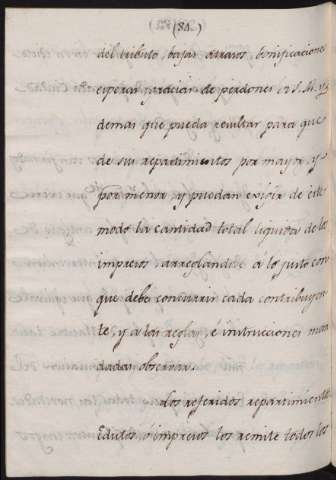 (84.)
del tributo, bajas atrasos, bonificaciones
esperas, gracias de perdones de S.M. y
demas que pueda resultar para que
de sus repartimientos por mayor, y
por menor y puedan exijir de este
modo la cantidad total liquida de los
impresos arreglandose a lo justo con
que debe concurrir cada contribuyen-
te, y a las reglas, é instrucciones man
dadas observar.
Los referidos repartimientos
Edictos, ó impresos los remite todos los